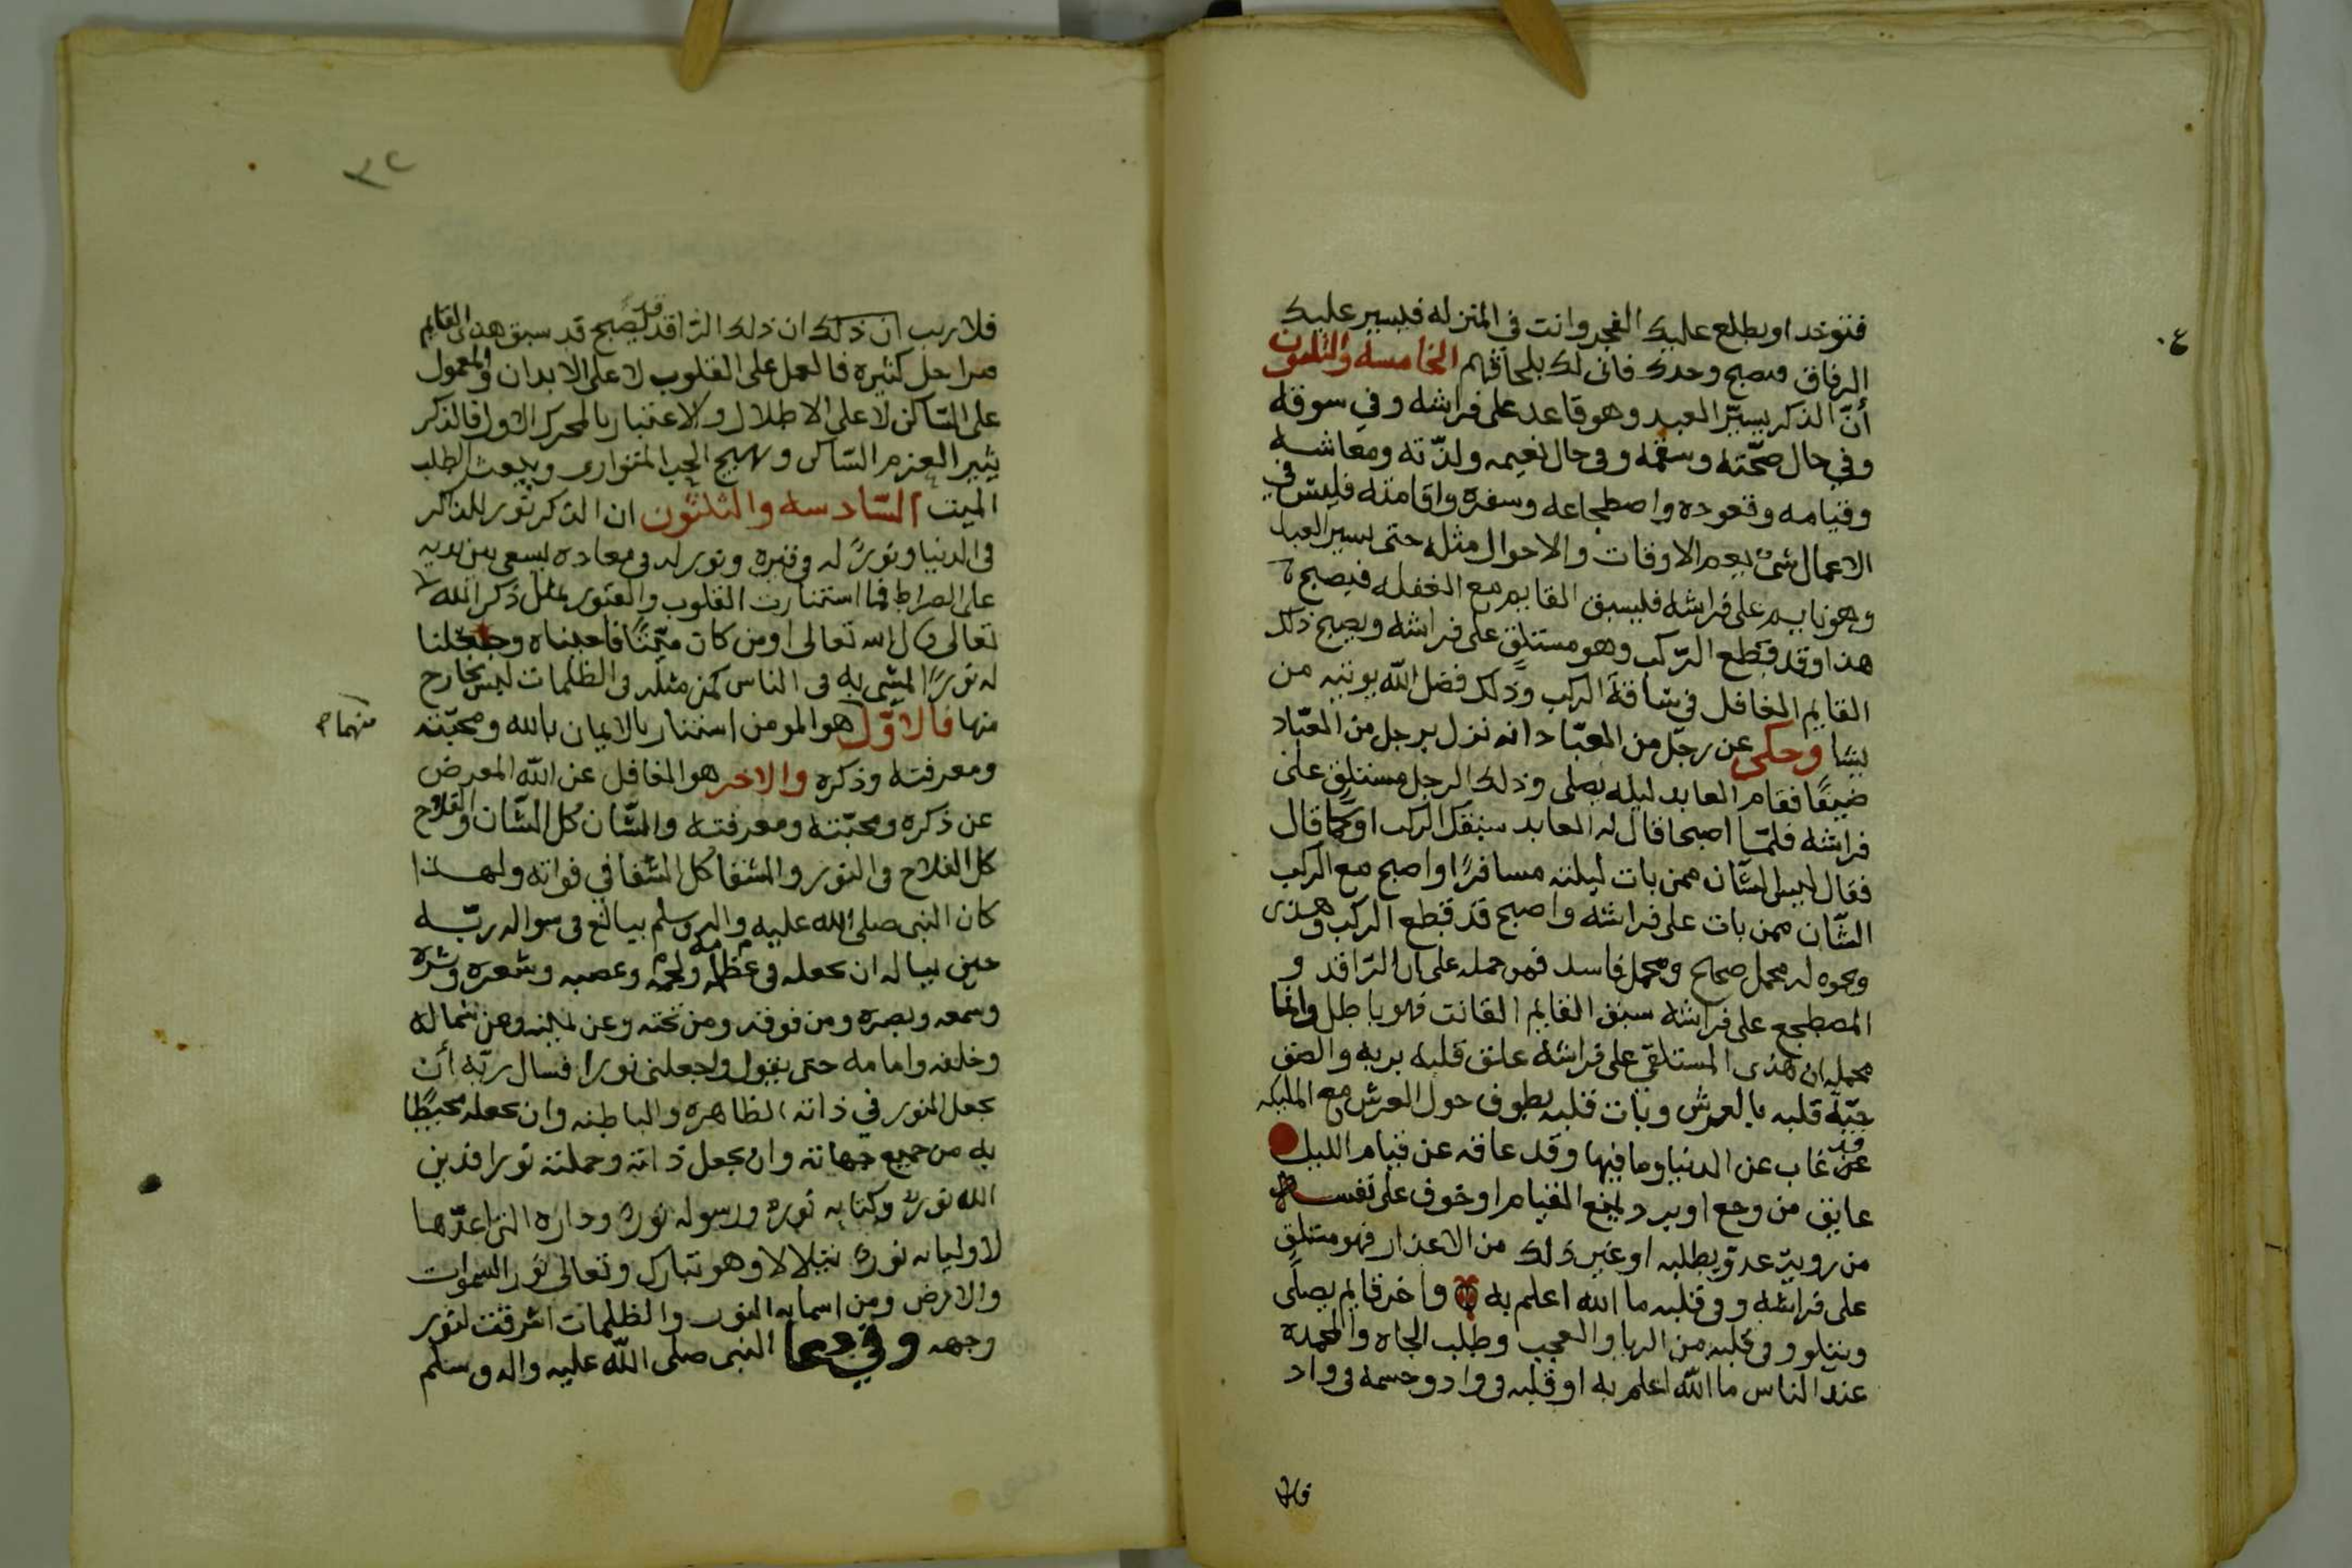 فتوخد او يطلع عليك الفجر وانت في المنزله فيسير عليك
الرفاق فتصبح وحدك فانى لك بلحاقهم الخامسه والثلثون
أنّ الذكر يسيّر العبد وهو قاعد على فراشه وفي سوقه
وفي حال صحّته وسقمه وفى حال نعيمه ولذّته ومعاشه
وقيامه وقعوده واضطجاعه وسفره واقامته فليس في
الاعمال شئ يعم الاوقات والاحوال مثله حتى يسير العبد
وهو نايم على فراشه فليسبق القايم مع الغفله فيصبح
هذا وقد قطع الرّكب وهو مستلقٍ على فراشه ويصبح ذلك
القايم الغافل في ساقة الركب وذلك فضل الله يوتيه من
يشا وحكى عن رجل من العبّاد انه نزل برجل من العبّاد
ضيفًا فقام العابد ليله يصلى وذلك الرجل مستلقٍ على
فراشه فلمّا اصبحا قال له العابد سبقك الركب او كما قال
فقال ليس الشّان ممن بات ليلته مسافرًا واصبح مع الركب
الشّان ممن بات على فراشه واصبح قد قطع الركب وهذى
ونحوه له محمل صحاح ومحمل فاسد فمن حمله على ان الرّاقد و
المصطجع على فراشه سبق القايم القانت فهو باطل وانما
محمله ان هذى المستلقى على فراشه علق قلبه بربه والصق
حبّة قلبه بالعرش وبات قلبه يطوف حول العرش مع المليكه
قد غاب عن الدنيا وما فيها وقد عاقه عن قيام الليل
عايق من وجع او برد يمنع القيام او خوف على نفسه
من روية عدوّ يطلبه او غير ذلك من الاعذار فهو مستلقٍ
على فراشه وفى قلبه ما الله اعلم به واخر قايم يصلّى
ويتلو وفى قلبه من الريا والعجب وطلب الجاه والمحمده
عند الناس ما الله اعلم به او قلبه فى واد وجسمه فى واد
٣٢
فلا ريب ان ذلك ان ذلك الرّاقد يصبح قد سبق هذى القايم
مراحل كثيره فالعمل على القلوب لا على الابدان والمعمول
على السّاكن لا على الاطلال والاعتبار بالمحرك الاول فالذكر
يثير العزم السّاكن ويهيج الحب المتوارى ويبعث الطلب
الميت السّادسه والثلثون ان الذكر نور للذاكر
فى الدنيا ونورٌ له فى قبره ونور له فى معاده يسعى بين يديه
على الصراط فما استنارت القلوب والقبور بمثل ذكر الله
تعالى قال الله تعالى اومن كان ميّتًا فاحييناه وجعلنا
له نورًا يمشى به فى الناس كمن مثله فى الظلمات ليس بخارج
منها فالاوّل هو المومن استنار بالايمان بالله ومحبّته
منهما
ومعرفته وذكره والاخر هو الغافل عن الله المعرض
عن ذكره ومحبّته ومعرفته والشّان كل الشّان والفلاح
كل الفلاح فى النور والشقا كل الشقا في فواته ولهذا
كان النبى صلى الله عليه واله وسلم يبالغ فى سواله ربّه
حين يساله ان يجعله فى عظامه ولحمه وعصبه وشعره وبشره
وسمعه وبصره ومن فوقه ومن تحته وعن يمينه وعن شماله
وخلفه وامامه حتى يقول واجعلنى نورا فسال ربّه أن
يجعل النور في ذاته الظاهره والباطنه وان يجعله محيطًا
به من جميع جهاته وان يجعل ذاته وجملته نورا فدين
الله نورٌ وكتابه نوره ورسوله نوره وداره التى اعدّها
لاوليايه نوره يتلالا وهو تبارك وتعالى نور السموات
والارض ومن اسمايه النور والظلمات اشرقت لنور
وجهه وفي دعا النبى صلى الله عليه واله وسلم